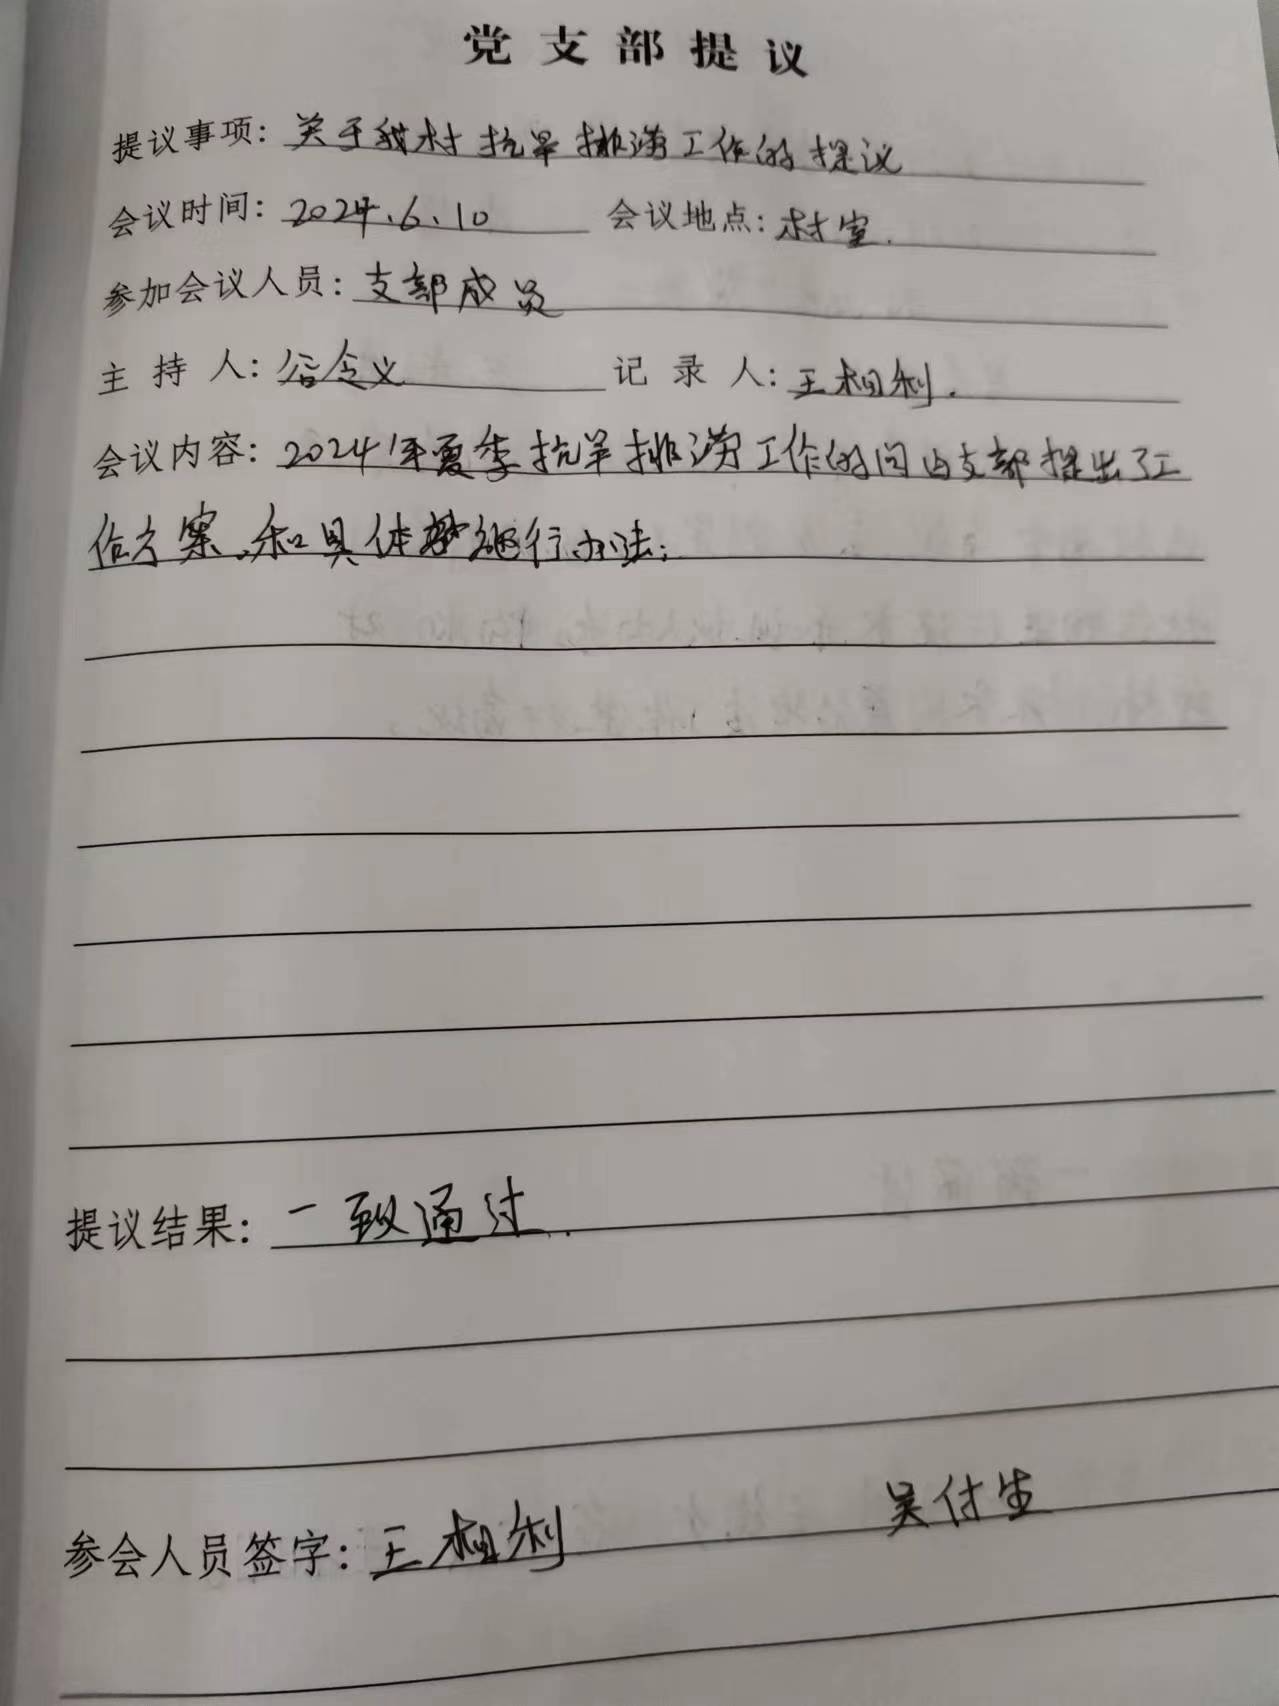 党支部提议
提议事项：关于我村抗旱排涝工作的提议
会议时间：2024.6.10 会议地点：村室.
参加会议人员：支部成员
主持人：谷念义 记录人：王相利.
会议内容：2024年夏季抗旱排涝工作的问 支部提出了工
作方案.和具体 行办法；
提议结果：一致通过.
参会人员签字：王相利 吴付生